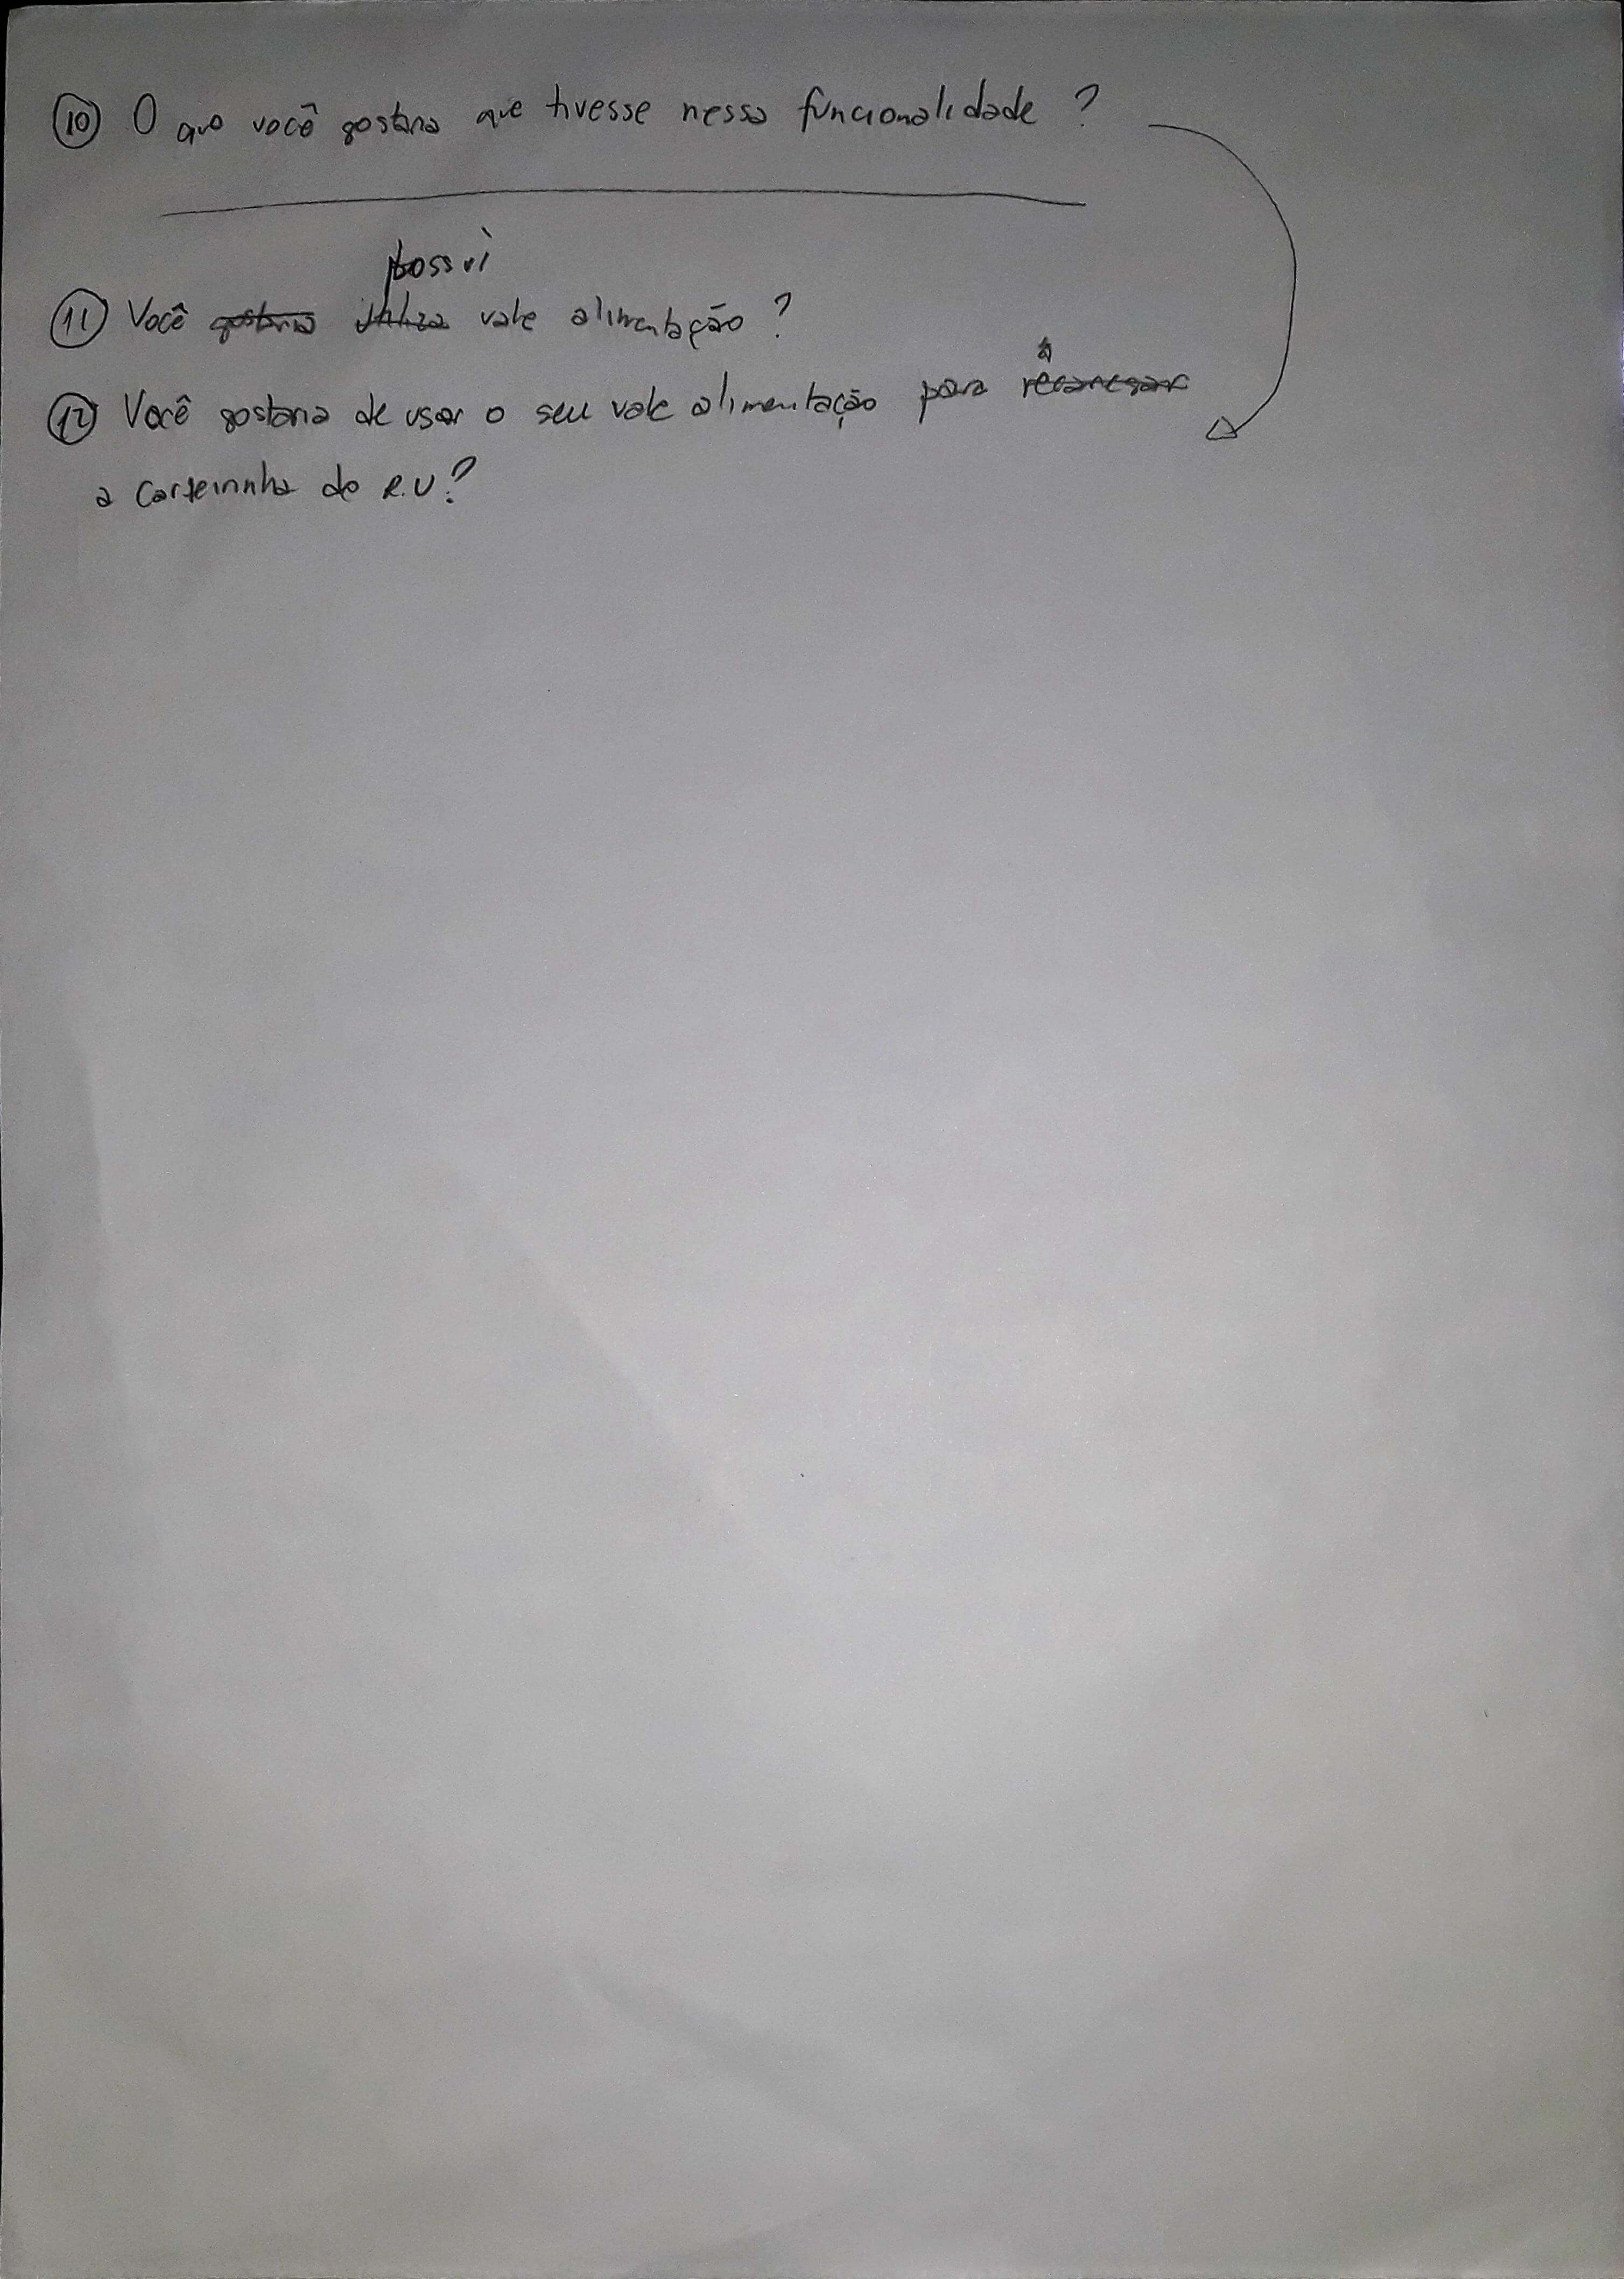 10 O que você gostaria que tivesse nessa funcionalidade ?
possui
11 Você gostaria utiliza vale alimentação ?
12 Você gostaria de usar o seu vale alimentação para recarregar
a carteirinha do R.U?